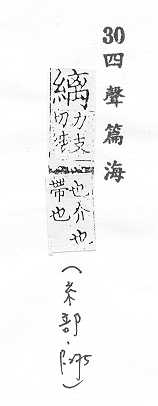 30四聲篇海
縭
力支
切
也介也
帶也
(糸部.